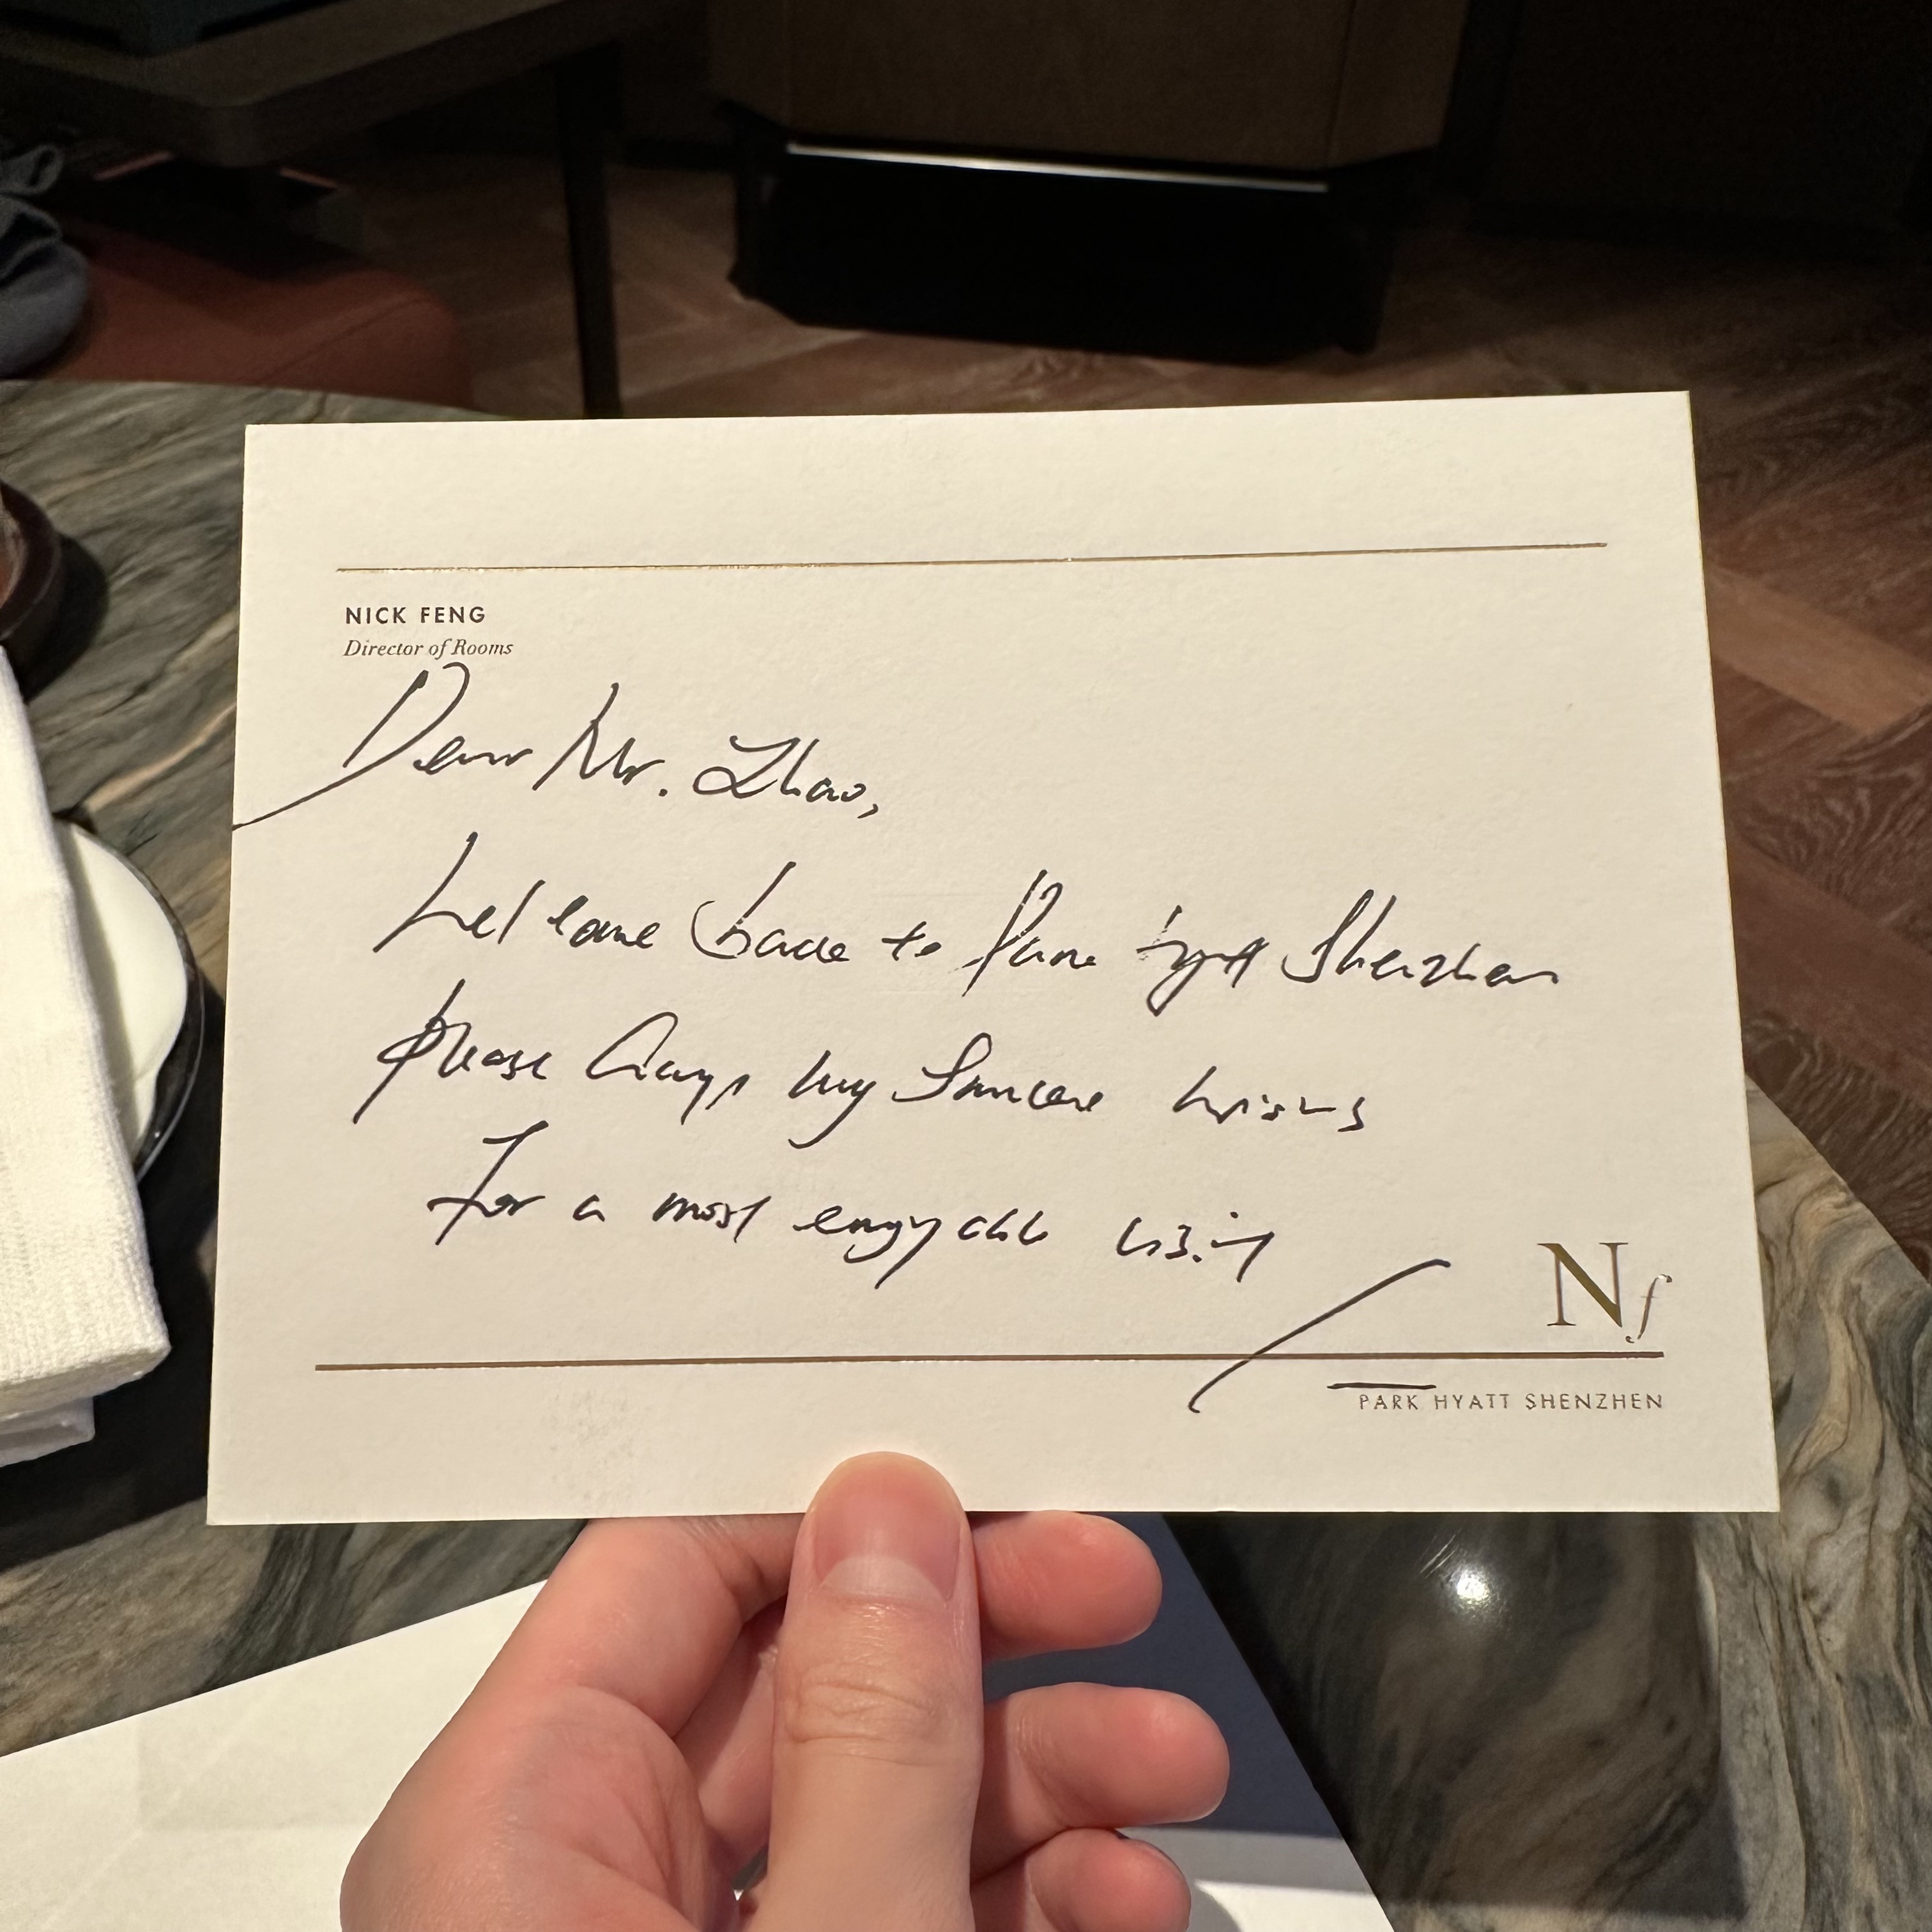 NICK FENG
Director of Rooms
Dear Mr. Zhao,
Welcome back to Park Hyatt Shenzhen
please my Sincere wishes
For a most enjoyable visit
Nf
PARK HYATT SHENZHEN